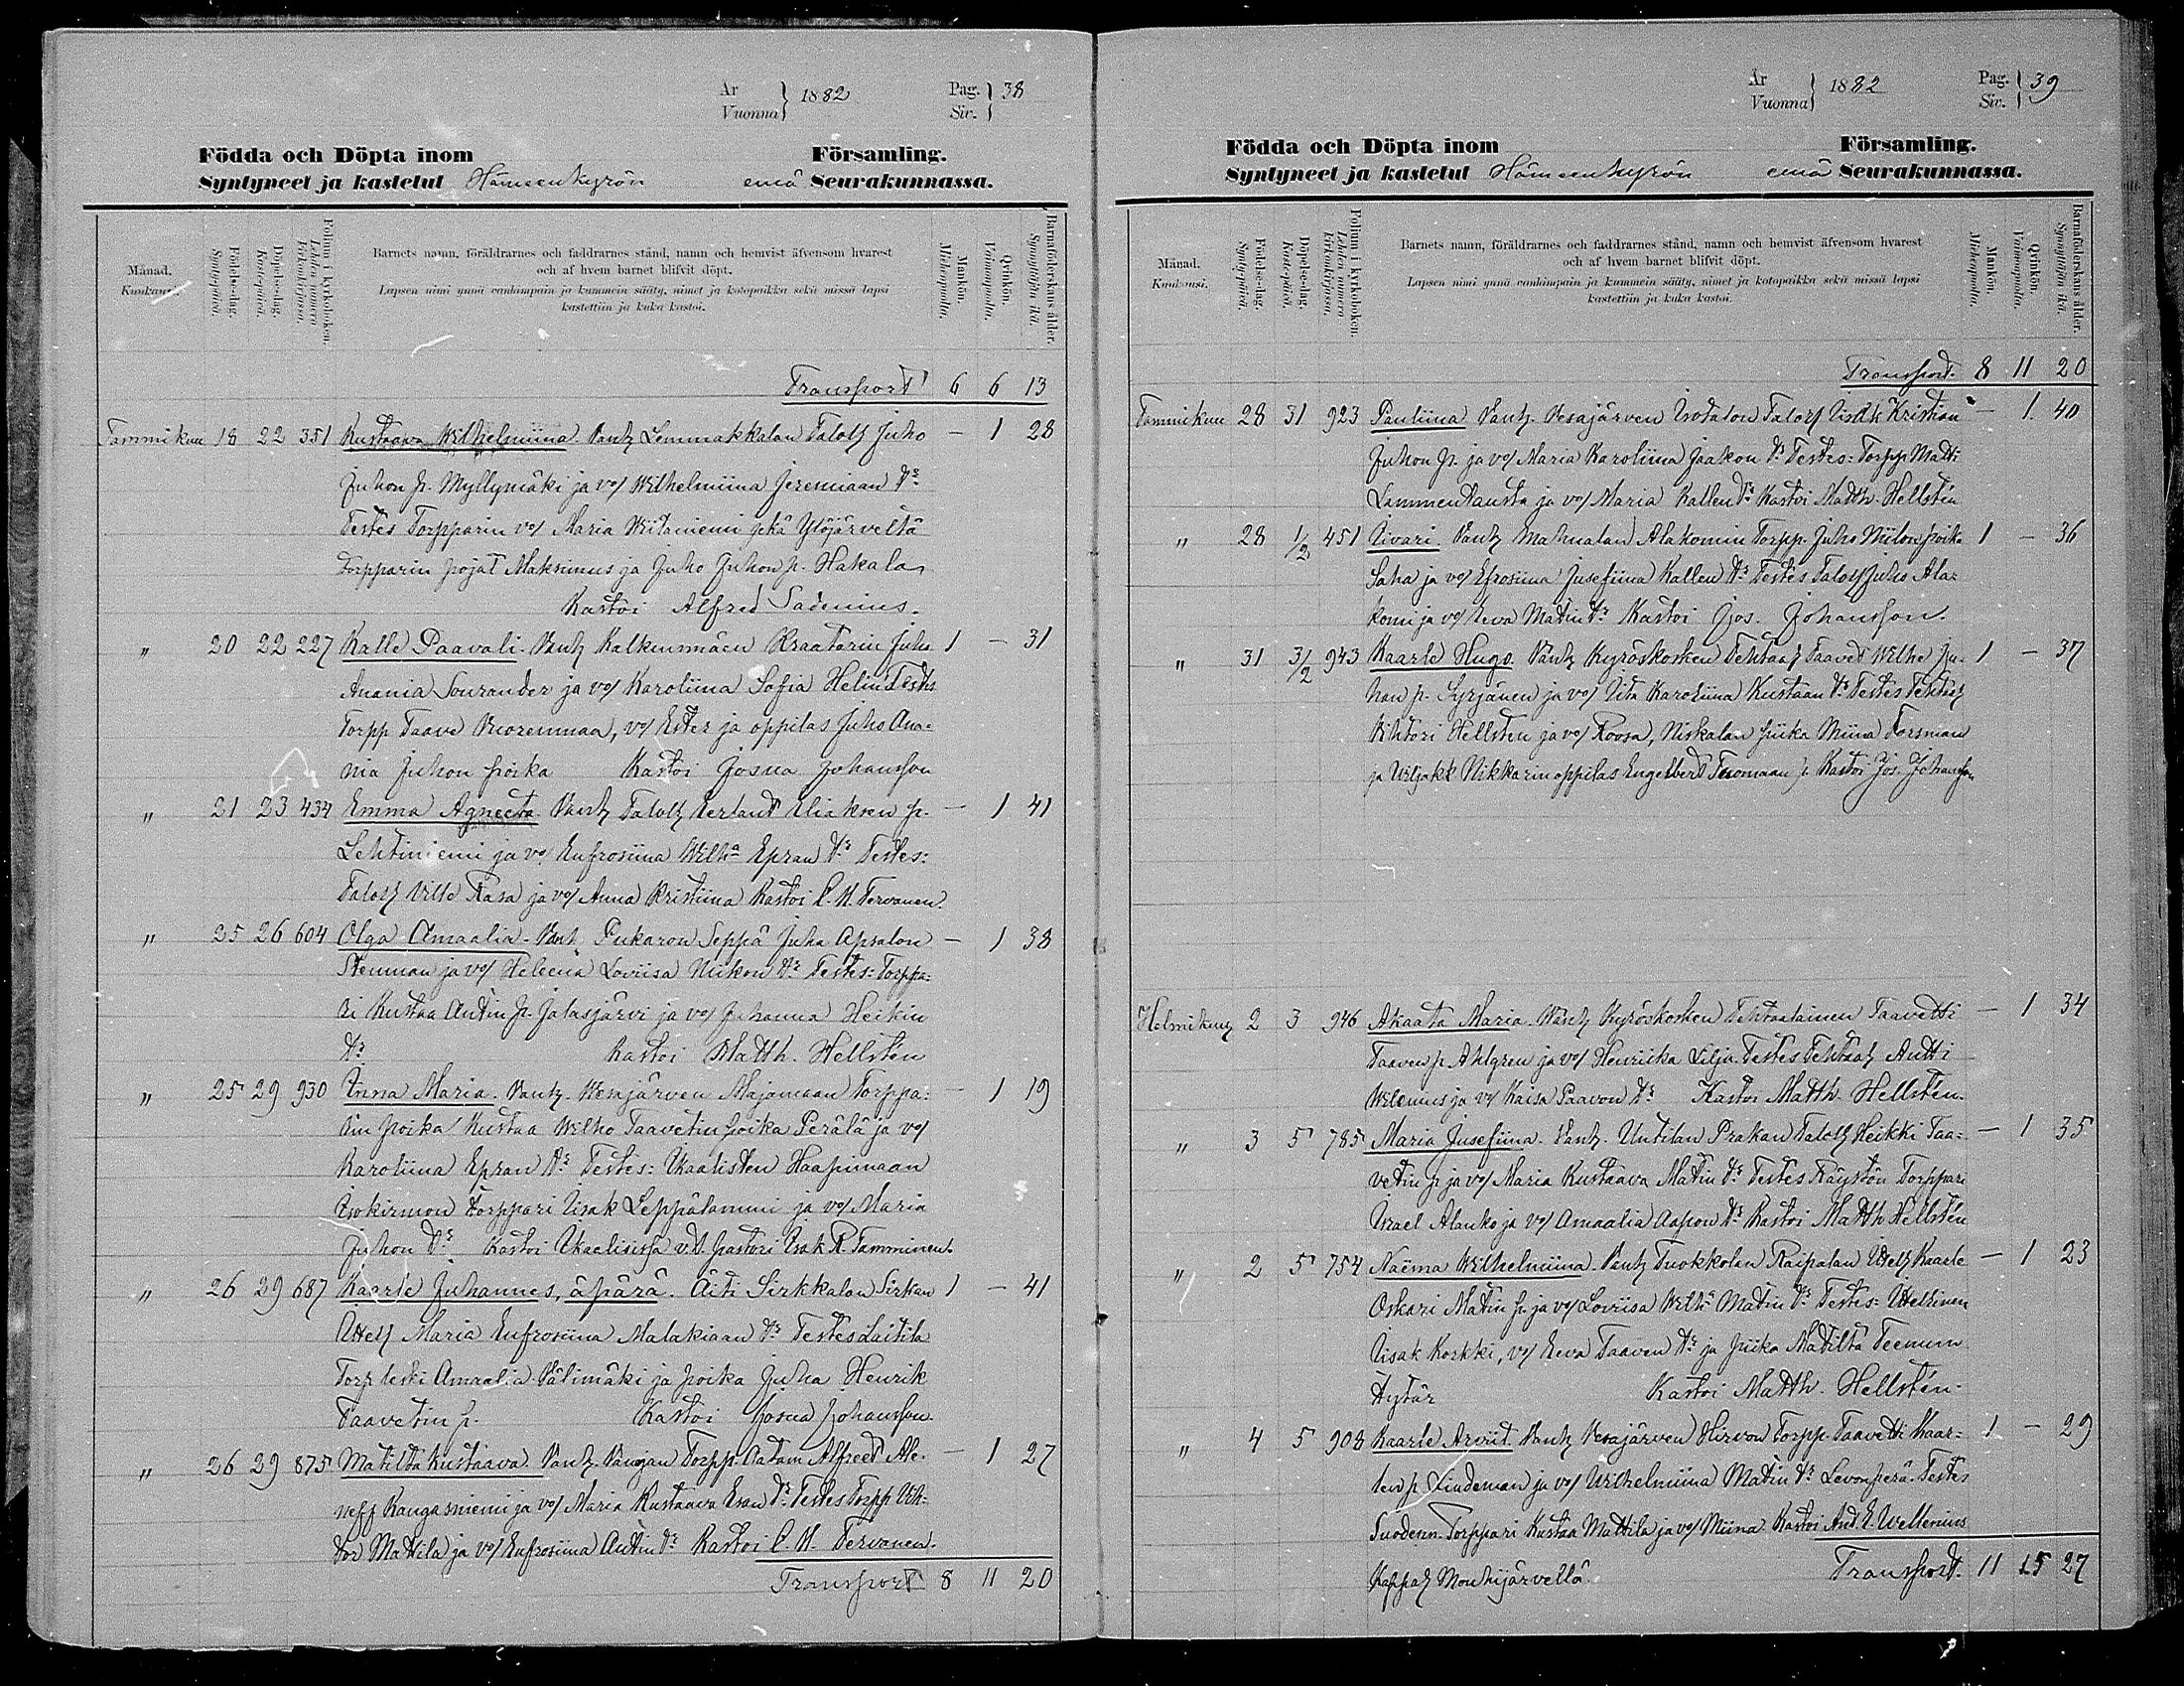 År Vuonna } 1882 Pag. Siv. } 38
Födda och Döpta inom Församling.
Syntyneet ja kastetut Hämeenkyrön emä Seurakunnassa.
Månad. Kuukausi.
Födelse-dag. Syntypäivä.
Döpelse-dag. Kastepäivä.
Folium i kyrkoboken. Lehden numero kirkonkirjassa.
Barnets namn, föräldrarnes och faddrarnes stånd, namn och hemvist äfvensom hvarest
och af hvem barnet blifvit döpt.
Lapsen nimi ynnä vanhimpain ja kummein sääty, nimet ja kotopaikka sekä missä lapsi
kastettiin ja kuka kastoi.
Mankön. Miehenpuolta.
Qvinkön. Vaimonpuolta.
Barnaföderskans ålder. Synnyttäjän ikä.
Transport 6 6 13
Tammikuu 18 22 351 Kustaava Wilhelmiina. Lemmakkalan Talol Juho — 1 28
Juhon p. Myllymäki ja vo/ Wilhelmiina Jeremiaan tr
Testes Torpparin vo/ Maria Wiitaniemi sekä Ylöjärveltä
torpparin pojat Maksimus ja Juho Juhon p. Hakala
Kastoi Alfred Sadenius.
" 20 22 227 Kalle Paavali. Kalkunmäen Kraatarin Juho 1 — 31
Anania Sourander ja vo/ Karoliina Sofia Helin Testes
Torpp Taave Vuorenmaa, vo/ Ester ja oppilas Juho Ana=
nia Juhon poika Kastoi Josua Johansson
" 21 23 434 Emma Agneeta. Talol Eerland Eliaksen p. — 1 41
Lehtiniemi ja vo/ Eufrosiina Wilha Epran tr Testes:
Talol Ville Rasa ja vo/ Anna Kristiina Kastoi C. N. Tervanen.
" 25 26 604 Olga Amaalia. Pukaron Seppä Juha Apsalon — 1 38
Stenman ja vo/ Heleena Loviisa Niikon tr Testes: Torppa=
ri Kustaa Antin p. Jalasjärvi ja vo/ Johanna Heikin
tr Kastoi Matth. Hellstén
" 25 29 930 Iina Maria. Wesajärven Majamaan Torppa= — 1 19
rin poika Kustaa Wilho Taavetin poika Perälä ja vo/
Karoliina Epran tr Testes: Ikaalisten Haapimaan
Isokirmon Torppari Iisak Leppälammi ja vo/ Maria
Juhon tr Kastoi Ikaalisissa v.t. pastori Isak R. Tamminen.
" 26 29 687 Kaarle Juhannes, äpärä. Äiti Sirkkalan Sirkan 1 — 41
Itsell Maria Eufrosiina Malakiaan tr Testes Laitila
Torp leski Amaalia Välimäki ja poika Juha Henrik
Taavetin p. Kastoi Josua Johansson.
" 26 29 875 Matilda Kustaava. Torpp. Aatam Alfred Ale= — 1 27
neff Kangasniemi ja vo/ Maria Kustaava Esan tr Testes Torpp Vik=
tor Mattila ja vo/ Eufrosiina Antin tr Kastoi C. N. Tervanen.
Transport 8 11 20
År Vuonna } 1882 Pag. Siv. } 39
Födda och Döpta inom Församling.
Syntyneet ja kastetut Hämeenkyrön emä Seurakunnassa.
Månad. Kuukausi.
Födelse-dag. Syntypäivä.
Döpelse-dag. Kastepäivä.
Folium i kyrkoboken. Lehden numero kirkonkirjassa.
Barnets namn, föräldrarnes och faddrarnes stånd, namn och hemvist äfvensom hvarest
och af hvem barnet blifvit döpt.
Lapsen nimi ynnä vanhimpain ja kummein sääty, nimet ja kotopaikka sekä missä lapsi
kastettiin ja kuka kastoi.
Mankön. Miehenpuolta.
Qvinkön. Vaimonpuolta.
Barnaföderskans ålder. Synnyttäjän ikä.
Transport. 8 11 20
Tammikuu 28 31 923 Pauliina Vesajärven Isotalon Talol Iisakki Kristian — 1 40
Juhon p. ja vo/ Maria Karoliina Jaakon tr Testes: Torpp Matti
Lammentausta ja vo/ Maria Kallen tr Kastoi Matth. Hellstén
" 28 1/2 451 Iivari. Mahnalan Alakomin Torpp. Juho Niilon poika 1 — 36
Saha ja vo/ Efrosiina Jusefiina Kallen tr Testes Talol Juho Ala=
komi ja vo/ Eeva Matin tr Kastoi Jos. Johansson.
" 31 3/2 943 Kaarle Hugo. Kyröskosken Tehtaal Taavet Wilhe Ju= 1 — 37
han p. Syrjänen ja vo/ Iita Karoliina Kustaan tr Testes Tehtaal
Vihtori Hellsten ja vo/ Roosa, Niskalan piika Miina Forsman
ja Viljakk Nikkarinoppilas Engelbert Tuomaan p. Kastoi Jos. Johansson
Helmikuu 2 3 946 Akaata Maria. Kyröskosken Tehtaalainen Taavetti — 1 34
Taaven p Ahlgren ja vo/ Henriika Lilja. Testes Tehtaal Antti
Welenius ja vo/ Kaisa Paavon tr Kastoi Matth. Hellstén.
" 3 5 785 Maria Jusefiina. Untilan Prakan Talol Heikki Taa= — 1 35
vetin p ja vo/ Maria Kustaava Matin tr Testes Räystön Torppari
Israel Alanko ja vo/ Amaalia Aapon tr Kastoi Matth Hellstén
" 2 5 754 Naëma Wilhelmiina. Tuokkolan Raipalan Itsell Kaarle — 1 23
Oskari Matin p. ja vo/ Loviisa Wilha Matin tr Testes: Itsellinen
Iisak Korkki, vo/ Eeva Taaven tr ja piika Matilta Teemun
tytär Kastoi Matth. Hellstén.
" 4 5 908 Kaarle Arviit. Vesajärven Hirvon Torpp. Taavetti Kaar= 1 — 29
len p Lindeman ja vo/ Wilhelmiina Matin tr Levonperä. Testes
Suodenn. Torppari Kustaa Mattila ja vo/ Miina Kastoi And. E. Wellenius
Kappal Mouhijärvellä Transport. 11 15 27